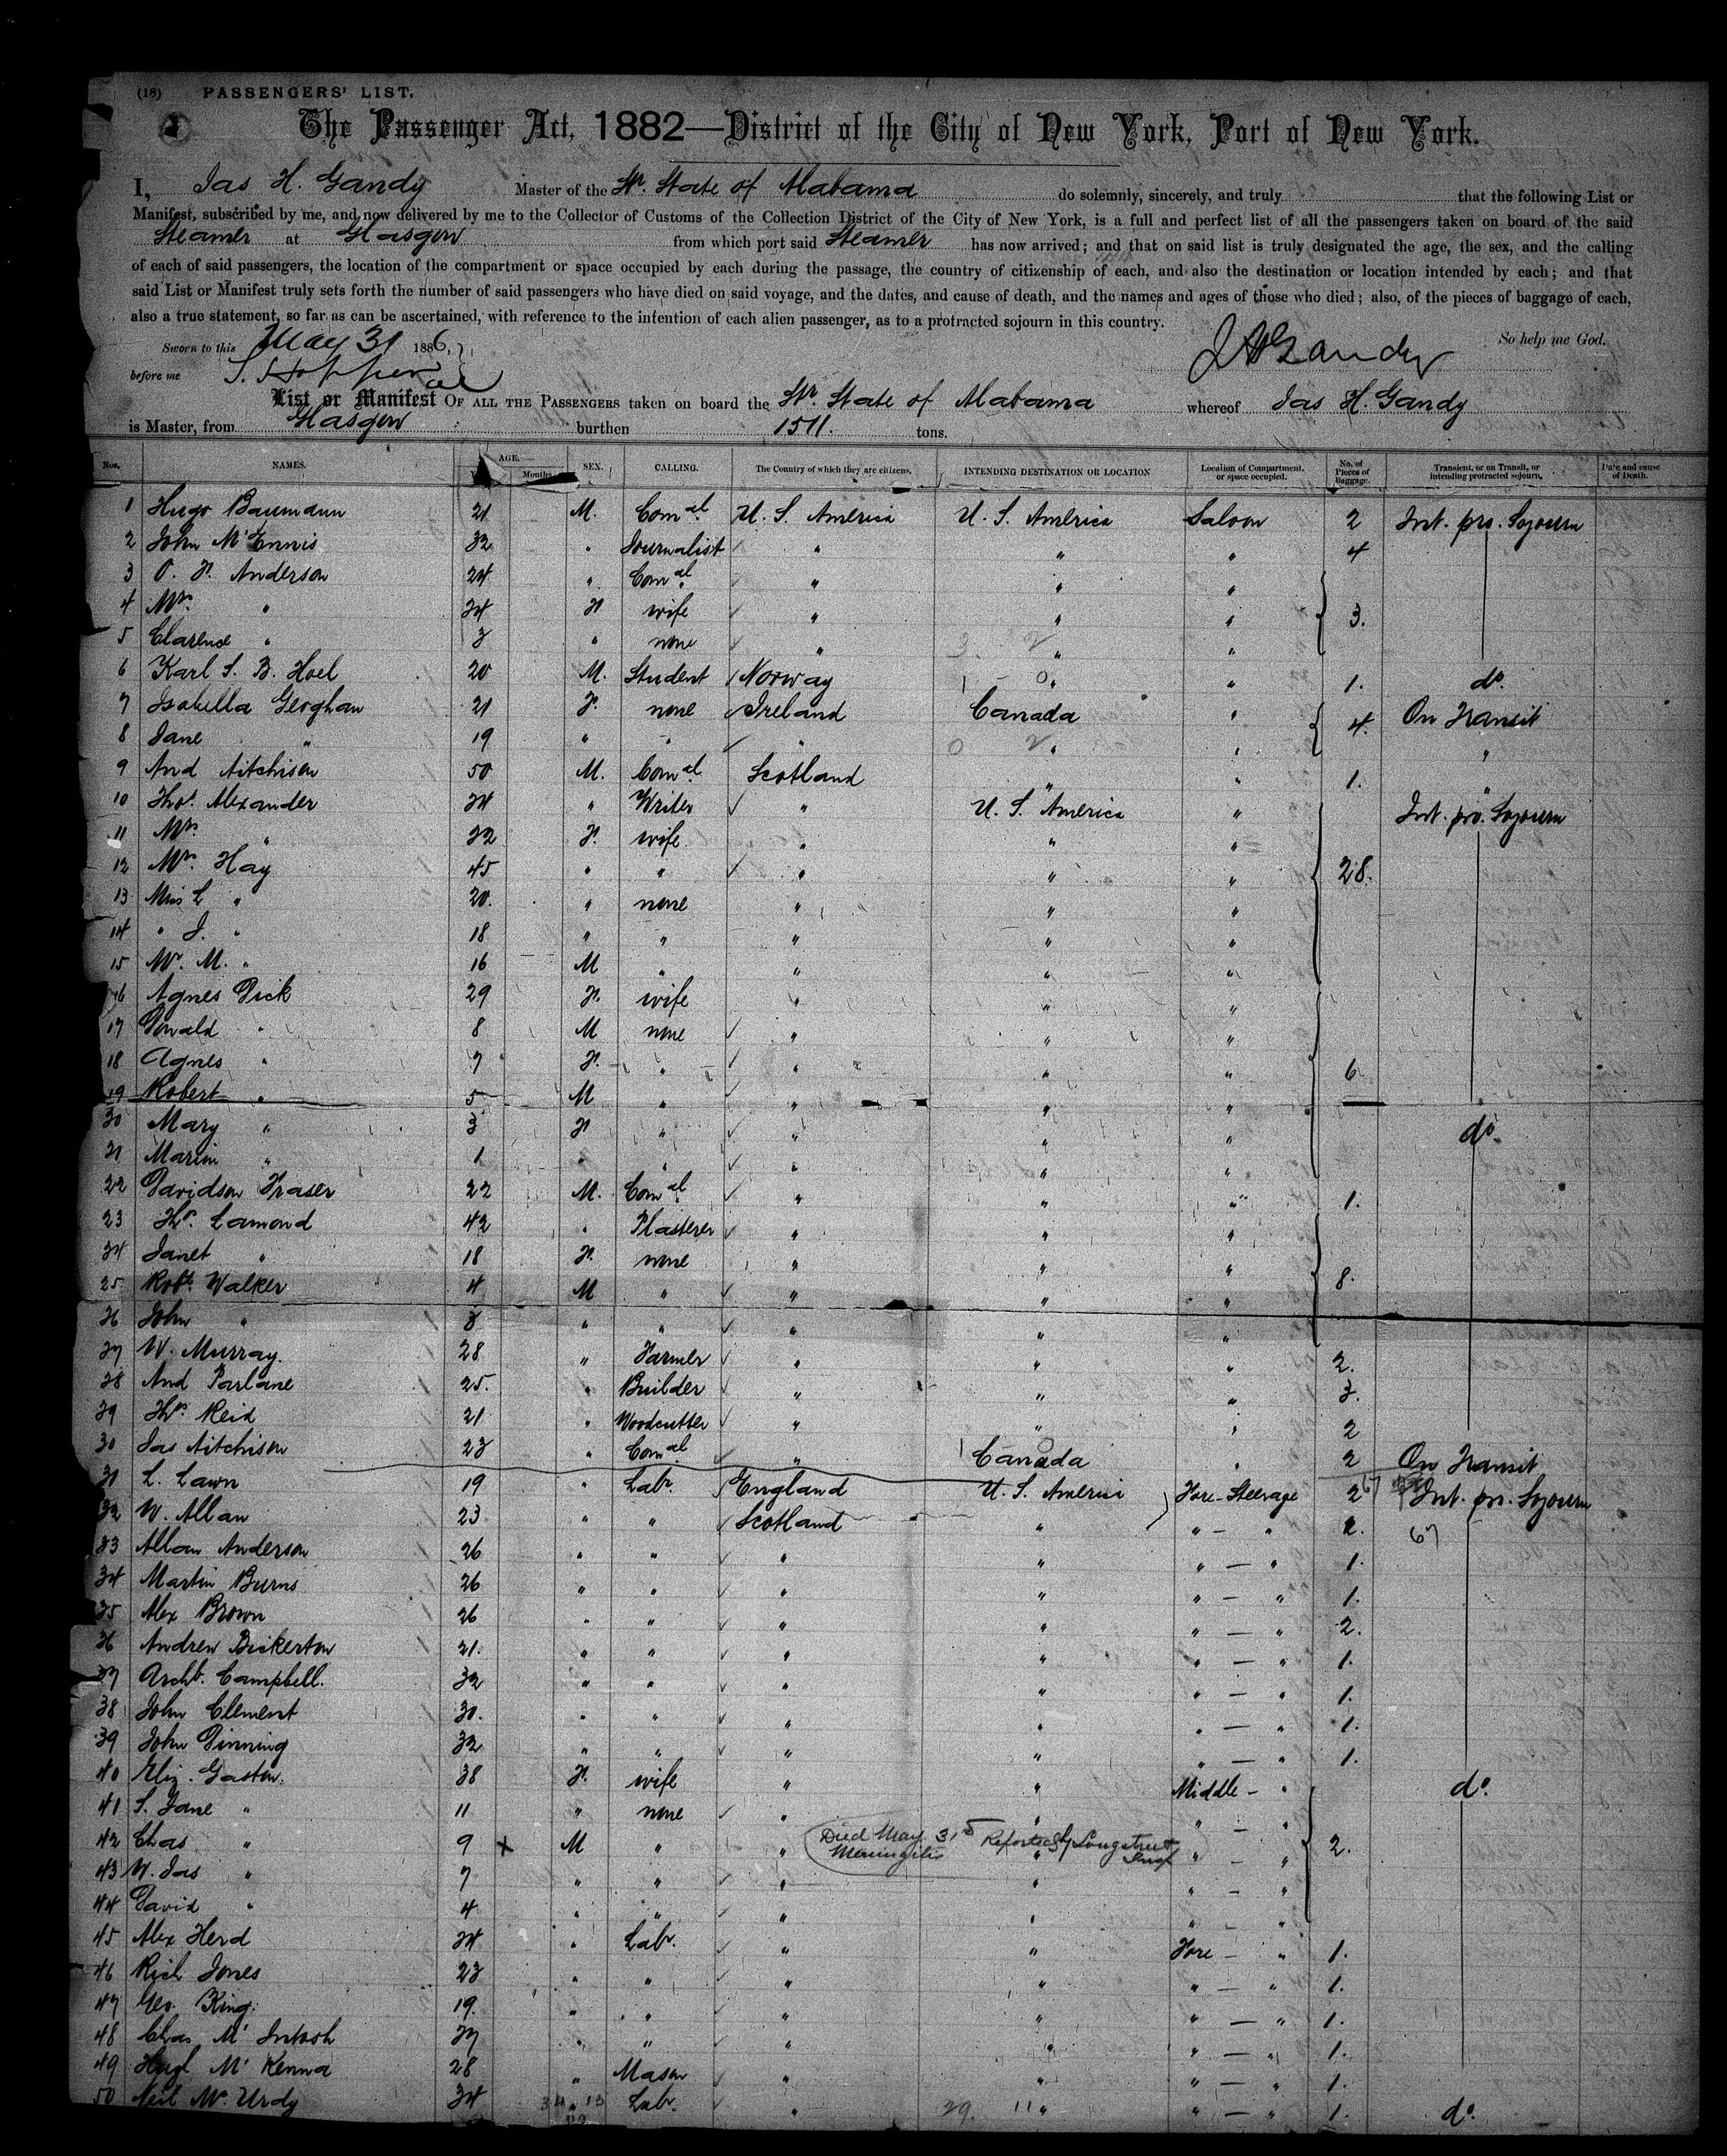 (18) PASSENGERS' LIST.
The Passenger Act, 1882—District of the City of New York, Port of New York.
I, Jas H. Gandy Master of the Str. State of Alabama do solemnly, sincerely, and truly that the following List or
Manifest, subscribed by me, and now delivered by me to the Collector of Customs of the Collection District of the City of New York, is a full and perfect list of all the passengers taken on board of the said
Steamer at Glasgow from which port said Steamer has now arrived; and that on said list is truly designated the age, the sex, and the calling
of each of said passengers, the location of the compartment or space occupied by each during the passage, the country of citizenship of each, and also the destination or location intended by each; and that
said List or Manifest truly sets forth the number of said passengers who have died on said voyage, and the dates, and cause of death, and the names and ages of those who died; also, of the pieces of baggage of each,
also a true statement, so far as can be ascertained, with reference to the intention of each alien passenger, as to a protracted sojourn in this country.
Sworn to this May 31 1886, J H Gandy So help me God.
before me
List or Manifest OF ALL THE PASSENGERS taken on board the Str. State of Alabama whereof Jas H. Gandy
is Master, from Glasgow burthen 1511. tons.
Nos. NAMES. AGE. Months. SEX. CALLING. The Country of which they are citizens. INTENDING DESTINATION OR LOCATION Location of Compartment, or space occupied. No. of Pieces of Baggage. Transient, or on Transit, or intending protracted sojourn. Date and cause of Death.
1 Hugo Baumann 21 M. Comal. U. S. America U. S. America Saloon 2 Int. pro. Sojourn
2 John McEnnis 32 " Journalist " " " 4
3 O. F. Anderson 24 " Comal. " " "
4 Mrs. " 24 F. wife " " " 3.
5 Clarence " 3 " none " " "
6 Karl S. B. Hoel 20 M. Student Norway " " 1. do.
7 Isabella Geoghan 21 F. none Ireland Canada " 4. On Transit
8 Jane " 19 " " " " " "
9 And Aitchison 50 M. Comal. Scotland " " 1. "
10 Thos. Alexander 24 " Writer " U. S. America " Int. pro. Sojourn
11 Mrs. " 22 F. wife " " "
12 Mrs. Hay 45 " " " " " 28.
13 Miss L " 20. " none " " "
14 " J. " 18 " " " " "
15 Mr. M. " 16 M " " " "
16 Agnes Dick 29 F. wife " " "
17 Donald " 8 M none " " "
18 Agnes " 7 F. " " " " 6
19 Robert " 5 M " " " "
20 Mary " 3 F " " " " do.
21 Marion " 1 " " " " "
22 Davidson Fraser 22 M. Comal. " " " 1.
23 Thos. Lamond 42 " Plasterer " " "
24 Janet " 18 F. none " " "
25 Robt. Walker 4 M " " " " 8.
26 John " 3 " " " " "
27 W. Murray. 28 " Farmer " " " 2.
28 And Parlane 25. " Builder " " " 3.
29 Thos. Reid 21 " Woodcutter " " " 2
30 Jas Aitchison 23 " Comal. " Canada " 2 On Transit
31 L. Lawn 19 " Labr. England U. S. America Fore-Steerage 2 Int. pro. Sojourn
32 W. Allan 23 " " Scotland " " — " 2. 67
33 Allan Anderson 26 " " " " " — " 1.
34 Martin Burns 26 " " " " " — " 1.
35 Alex Brown 26 " " " " " — " 2.
36 Andrew Bickerton 21. " " " " " — " 1.
37 Archd. Campbell. 32 " " " " " — " 1.
38 John Clement 30. " " " " " — " 1.
39 John Dinning 32 " " " " " — " 1.
40 Eliz. Gaston. 38 F. wife " " Middle - " do.
41 S. Jane " 11 " none " " " - "
42 Chas " 9 x M " " Died May 31st Meningitis Reported by Longstreet Insp " " - " 2.
43 W. Jas " 7 " " " " " - "
44 David " 4 " " " " " - "
45 Alex Herd 24 " Labr. " " Fore - " 1.
46 Rich Jones 23 " " " " " — " 1.
47 Geo. King. 19. " " " " " — " 1.
48 Chas McIntosh 27 " " " " " — " 1.
49 Hugh McKenna 28 " Mason " " " — " 1.
50 Neil McUrdy 24 " Labr. " 29. 11 " " — " 1. do.